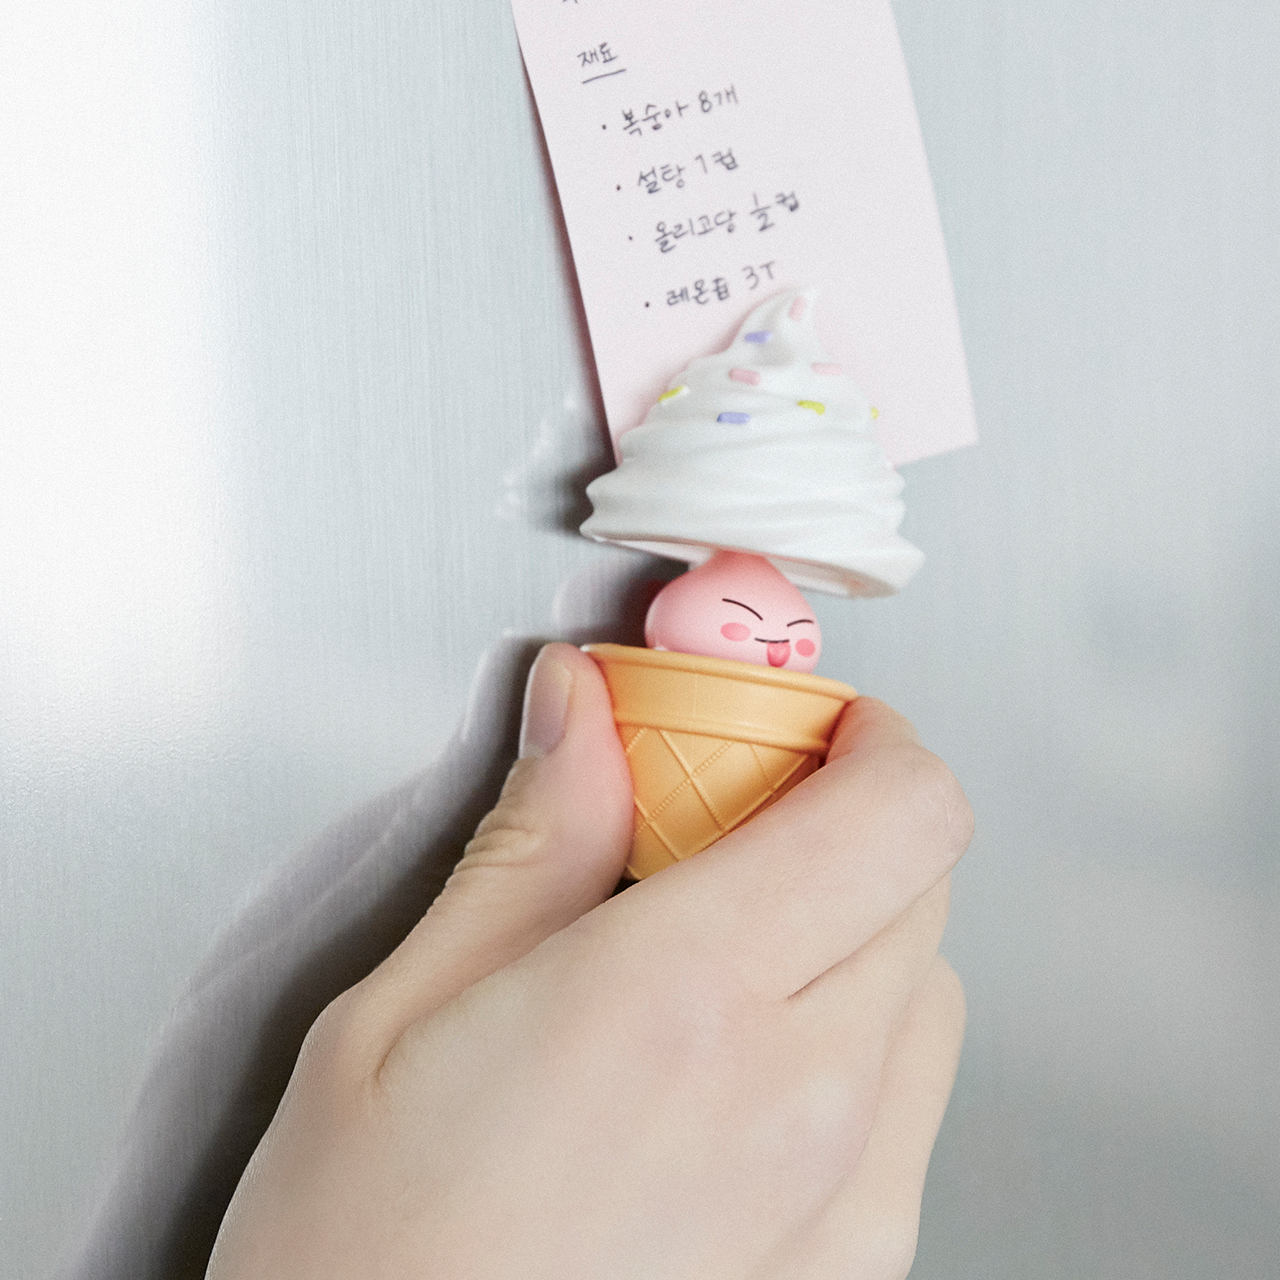 재료
· 복숭아 8개
· 설탕 1컵
· 올리고당 1/2컵
· 레몬즙 3T